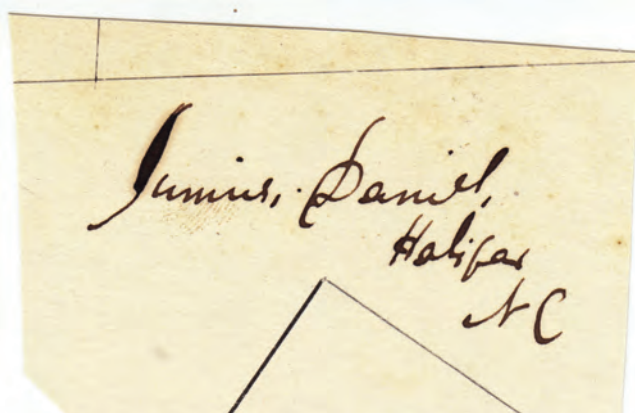 Junius, Daniel,
Halifax
N C